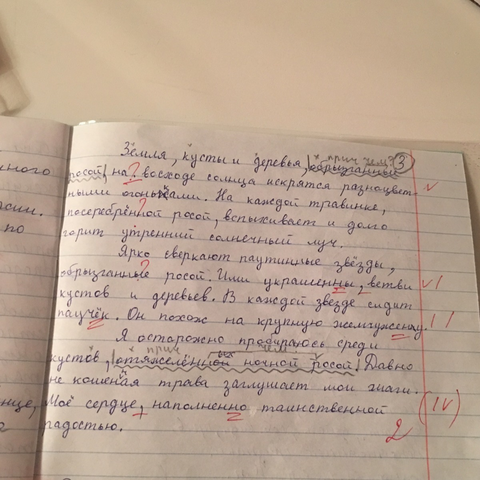 х прич чем? 3
Земля, кусты и деревья, обрызганные
нного росой, на? восходе солнца искрятся разноцвет- v
ными огоньками. На каждой травинке,
посеребрённой росой, вспыхивает и долго
по горит утренний солнечный луч.
Ярко сверкают паутинные звёзды,
обрызганные росой. Ими украшенны, ветви v |
кустов и деревьев. В каждой звезде сидит
паучёк. Он похож на крупную жемчужену. | |
Я осторожно пробираюсь среди
х прич чем?
кустов, отяжелённых ночной росой. Давно
не кошеная трава заглушает мои шаги.
Моё сердце, наполненно таинственной (IV)
радостью. 2